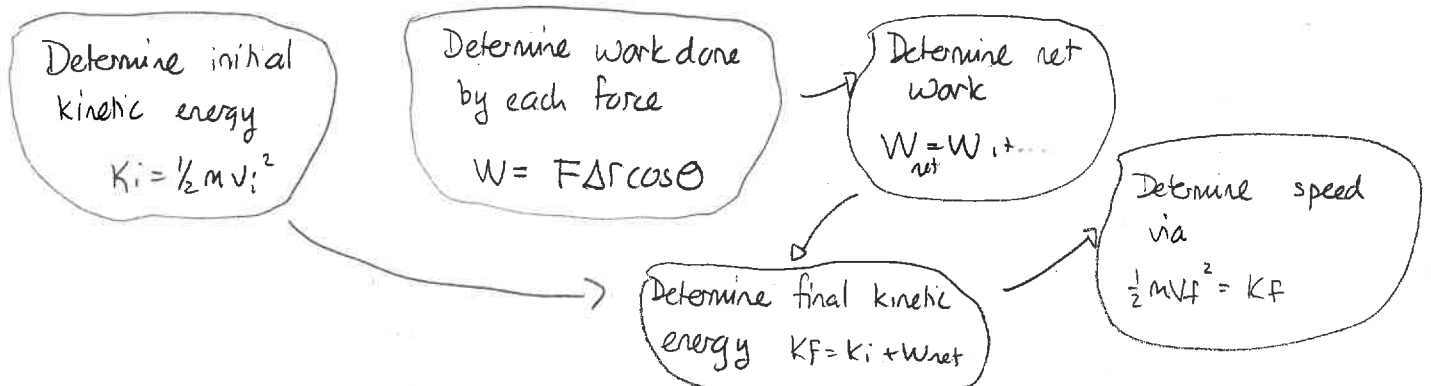 Determine initial
kinetic energy
Ki = ½ m vi²
Determine work done
by each force
W = FΔr cosθ
Determine net
work
Wnet = W1 + ....
Determine final kinetic
energy Kf = Ki + Wnet
Determine speed
via
½ mvf² = Kf